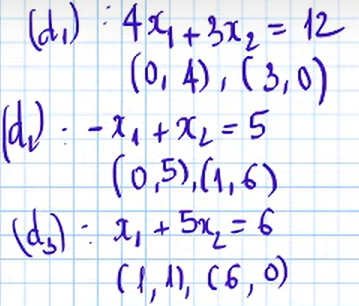 (d₁) : 4x₁ + 3x₂ = 12
(0, 4), (3, 0)
(d₂) : -x₁ + x₂ = 5
(0, 5), (1, 6)
(d₃) : x₁ + 5x₂ = 6
(1, 1), (6, 0)